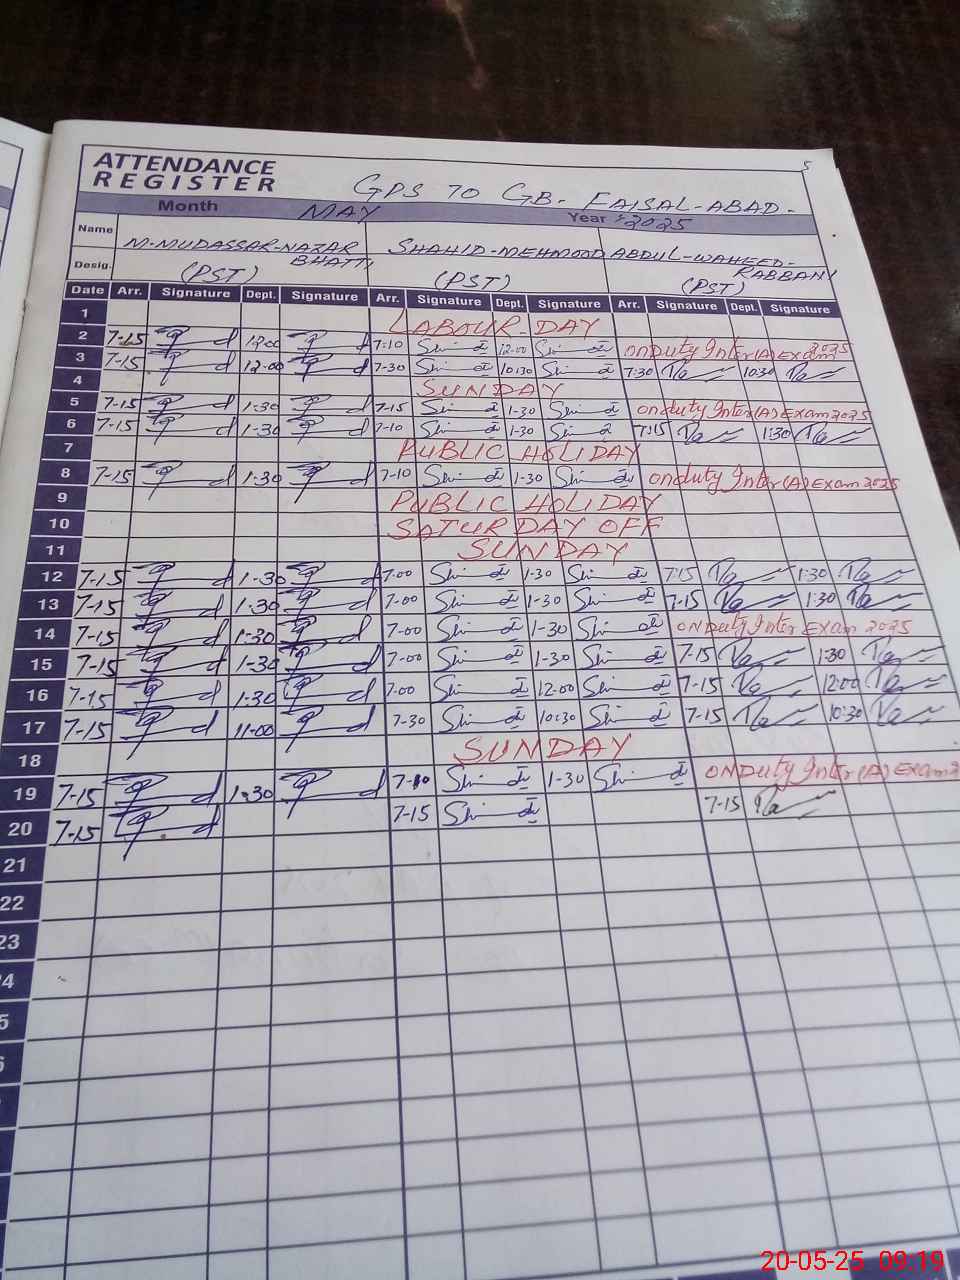 5
ATTENDANCE
REGISTER
GPS 70 GB. FAISAL-ABAD-
Month MAY Year 2025
Name M-MUDASSAR-NAZAR BHATTI SHAHID-MEHMOOD ABDUL-WAHEED-RABBANI
Desig. (PST) (PST) (PST)
Date Arr. Signature Dept. Signature Arr. Signature Dept. Signature Arr. Signature Dept. Signature
1 LABOUR-DAY
2 7-15 7-10 12-00 onduty Inter(A) Exam 2025
3 7-15 12-00 7-30 10:30 7:30 10:30
4 SUNDAY
5 7-15 1-30 7-15 1-30 onduty Inter(A) Exam 2025
6 7-15 1-30 7-10 1-30 7:15 1:30
7 PUBLIC HOLIDAY
8 7-15 1:30 7-10 1-30 onduty Inter(A) Exam 2025
9 PUBLIC HOLIDAY
10 SATURDAY OFF
11 SUNDAY
12 7-15 1-30 7-00 1-30 7:15 1:30
13 7-15 1-30 7-00 1-30 7-15 1:30
14 7-15 1-30 7-00 1-30 ON Duty Inter Exam 2025
15 7-15 1-30 7-00 1-30 7-15 1:30
16 7-15 1:30 7-00 12-00 7-15 12:00
17 7-15 11-00 7-30 10:30 7-15 10:30
18 SUNDAY
19 7-15 1.30 7-10 1-30 ON Duty Inter(A) Exam
20 7-15 7-15 7-15
21
22
23
20-05-25 09:19